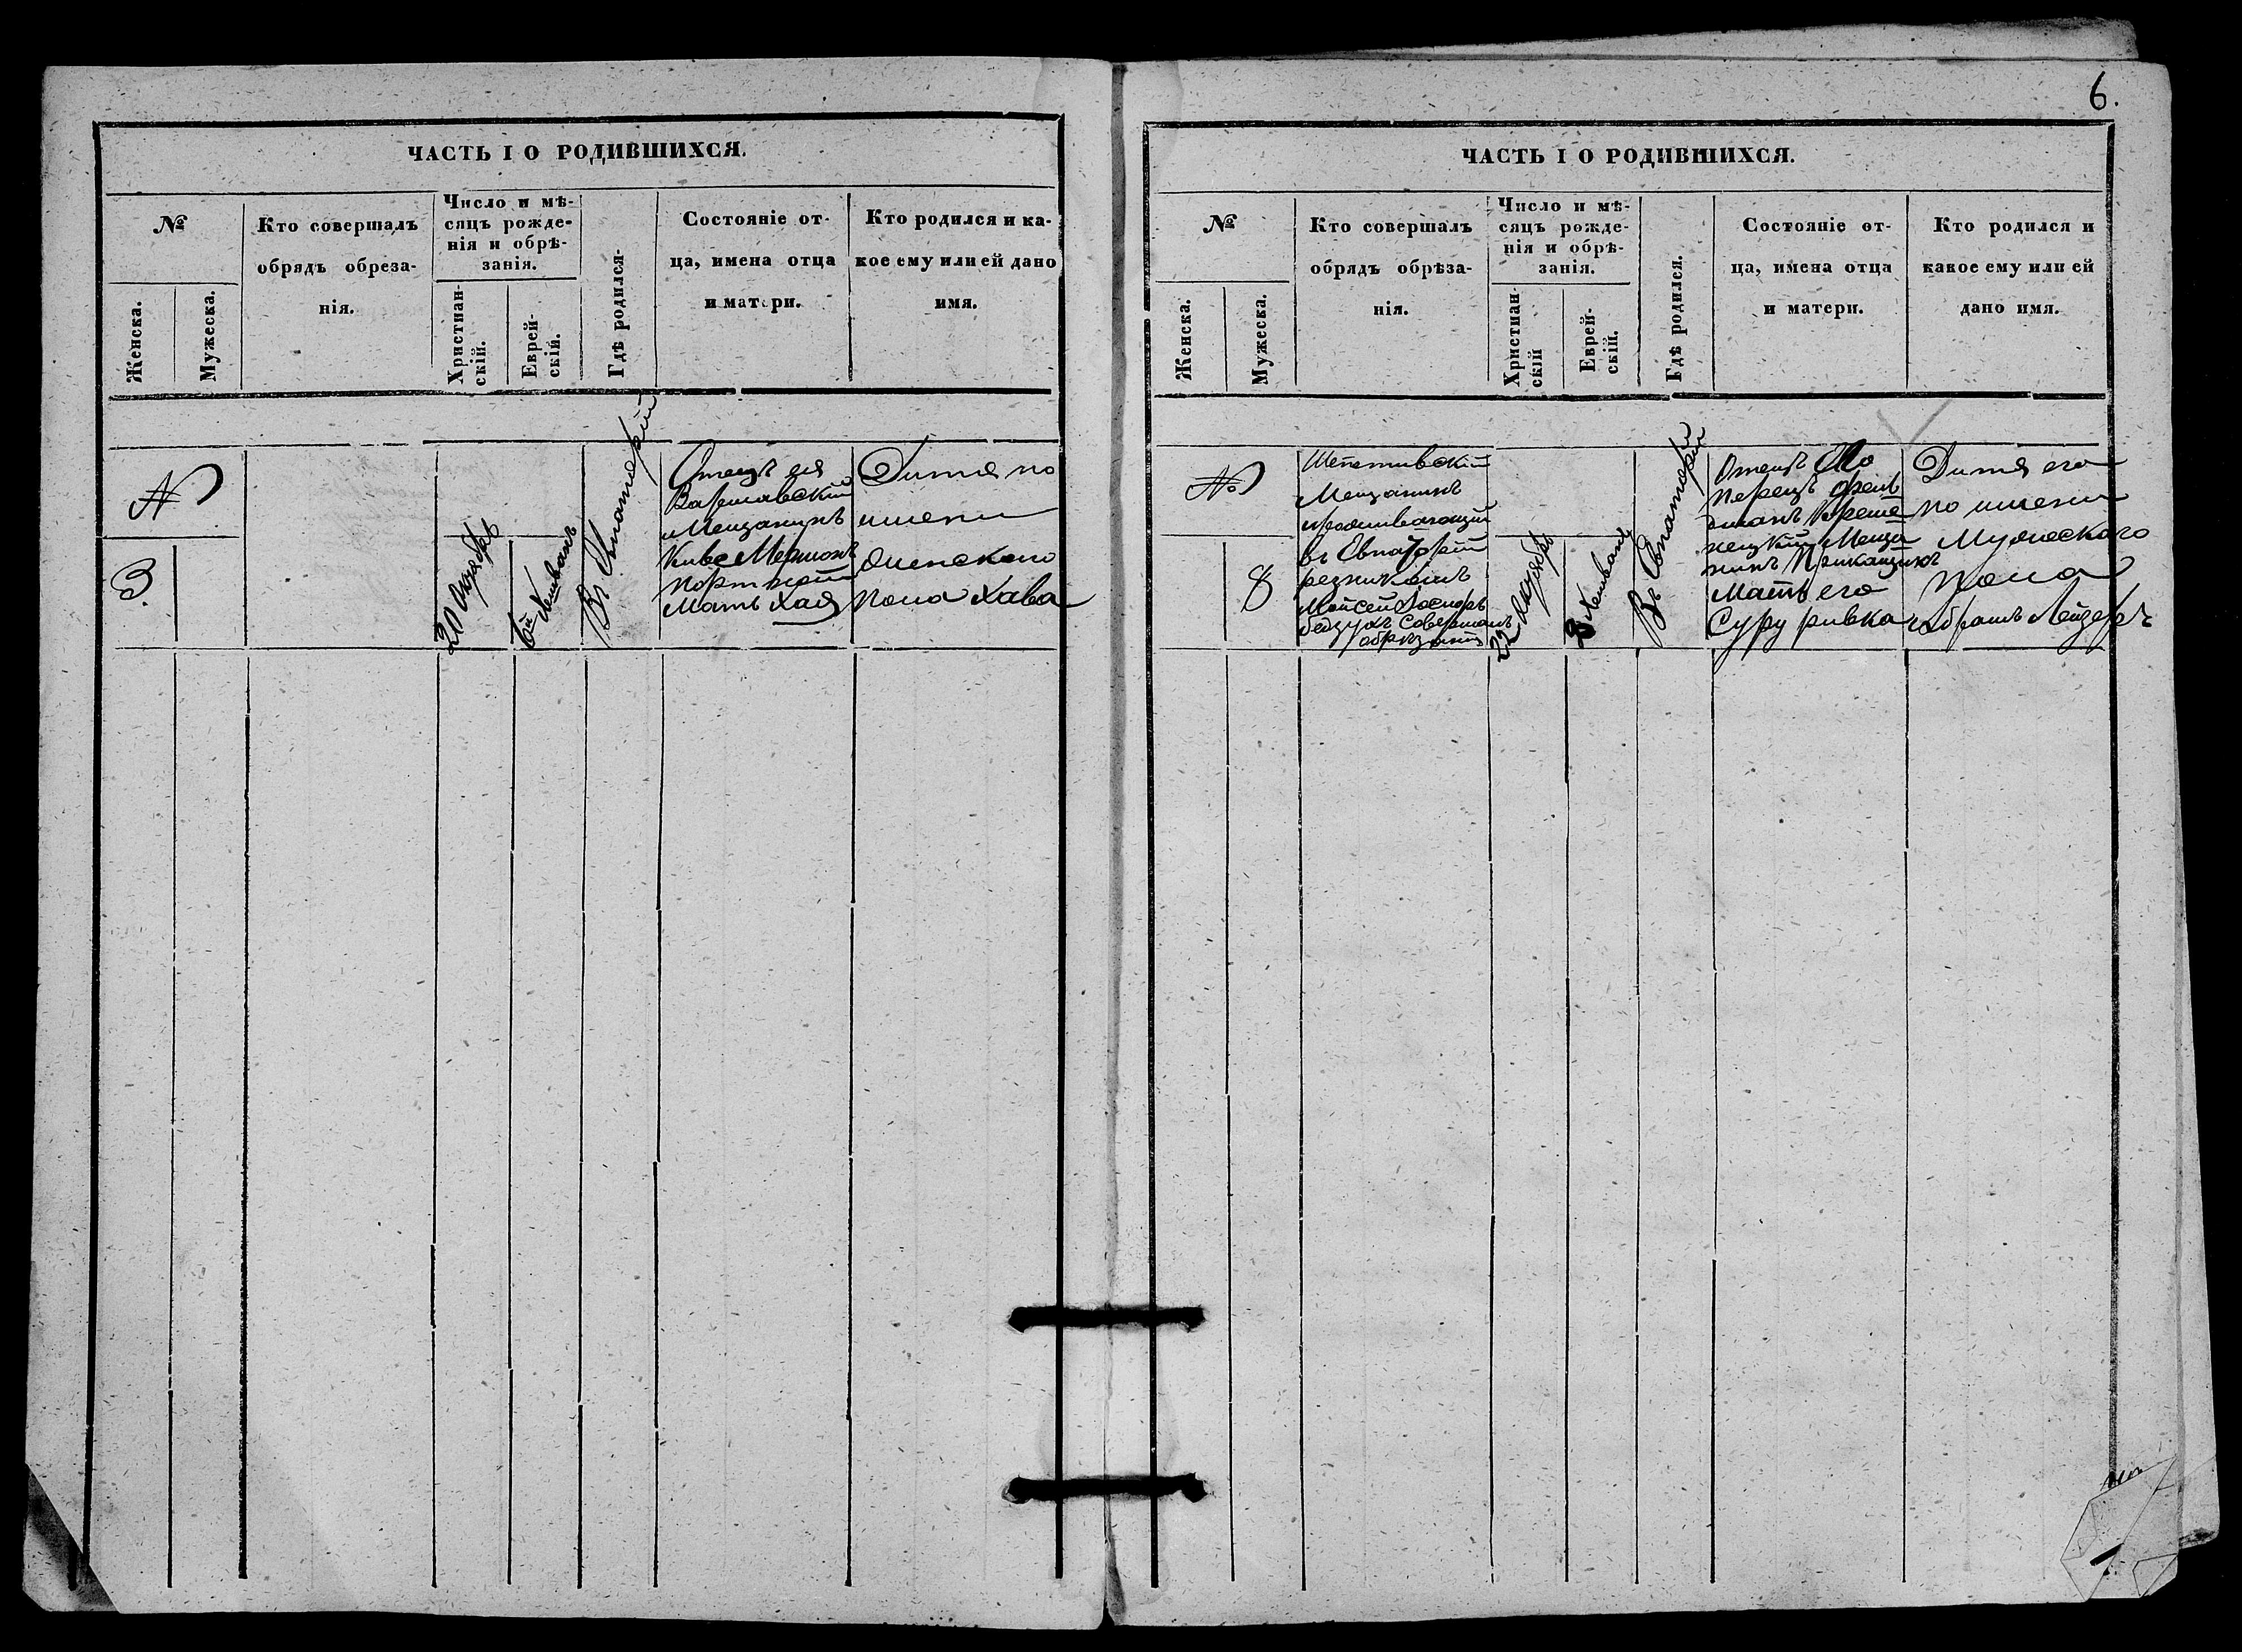 6.
ЧАСТЬ I О РОДИВШИХСЯ.
№
Женска.
Мужеска.
Кто совершалъ
обрядъ обреза-
нія.
Число и мѣ-
сяцъ рожде-
нія и обрѣ-
занія.
Христиан-
скій.
Еврей-
скій.
Гдѣ родился.
Состояніе от-
ца, имена отца
и матери.
Кто родился и ка-
кое ему или ей дано
имя.
№
3.
20 Октябрь
6й Хешванъ
Въ Евпаторіи
Отецъ ея
Варшавскій
Мещанинъ
Портной
Мать Хая
Дитя по
имени
женскаго
пола Хава
ЧАСТЬ I О РОДИВШИХСЯ.
№
Женска.
Мужеска.
Кто совершалъ
обрядъ обрѣза-
нія.
Число и мѣ-
сяцъ рожде-
нія и обрѣ-
занія.
Христиан-
скій
Еврей-
скій.
Гдѣ родился.
Состояніе от-
ца, имена отца
и матери.
Кто родился и
какое ему или ей
дано имя.
№
8
Шепетивскій
Мещанинъ
проживающій
въ Евпаторіи
резникомъ
Мойсей
Совершалъ
обрѣзаніе
22 Октябрь
8 Хешванъ
Въ Евпаторіи
Отецъ
Перецъ
Меща
нинъ Прикащикъ
Мать его
Суру ривка
Дитя его
по имени
Мужескаго
пола
Абрамъ Лейзеръ